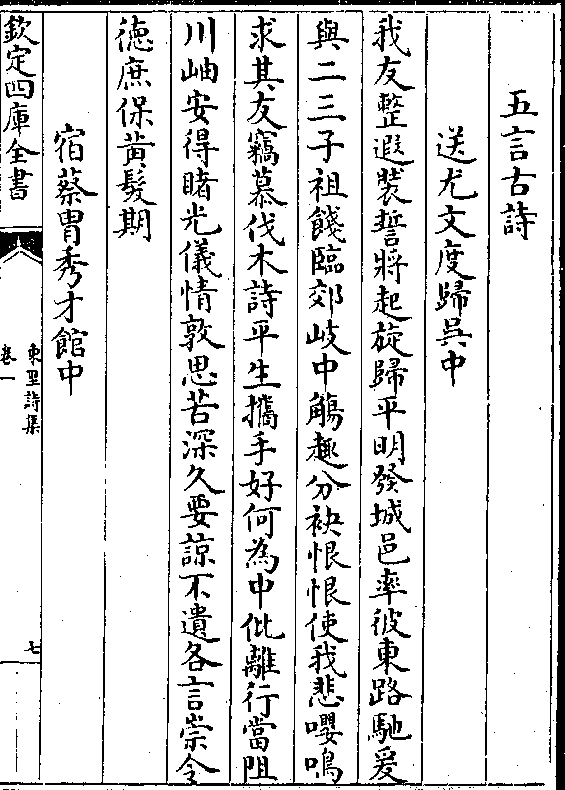 五言古詩
送尤文度歸吳中
我友整遐裝誓將起旋歸平明發城邑率彼東路馳爰
與二三子祖餞臨郊岐中觴趣分袂恨恨使我悲嚶鳴
求其友竊慕伐木詩平生攜手好何為中仳離行當阻
川岫安得睹光儀情敦思苦深久要諒不遺各言崇令
德庶保黃髮期
宿蔡胄秀才館中
欽定四庫全書
東里詩集
卷一
七